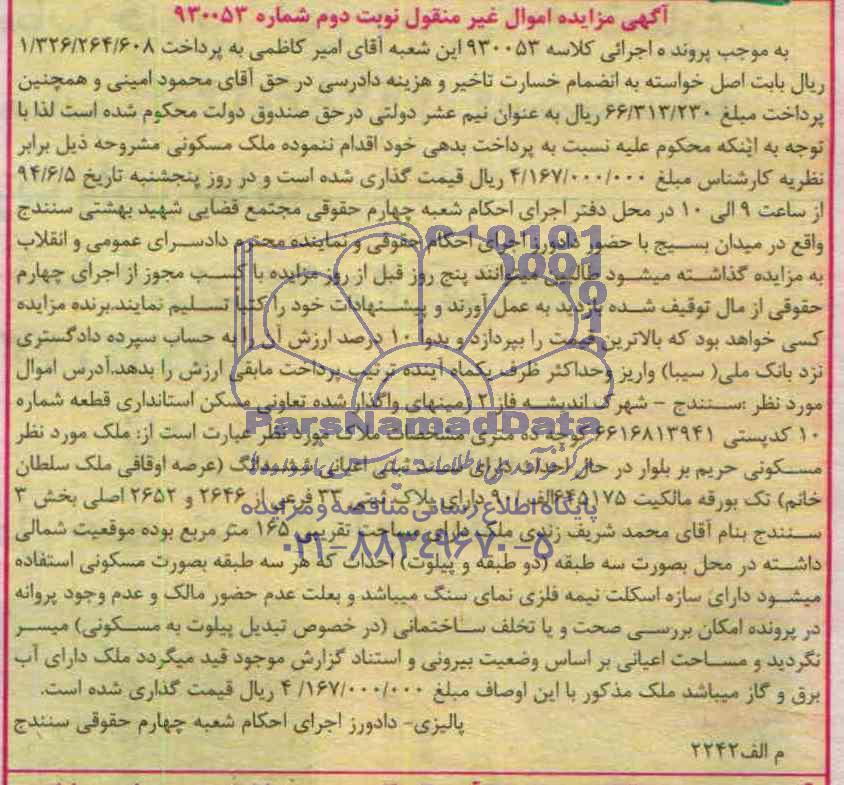 آگهی مزایده اموال غیر منقول نوبت دوم شماره ۹۳۰۰۵۳
به موجب پرونده اجرائی کلاسه ۹۳۰۰۵۳ این شعبه آقای امیر کاظمی به پرداخت ۱/۳۲۶/۲۶۴/۶۰۸
ریال بابت اصل خواسته به انضمام خسارت تاخیر و هزینه دادرسی در حق آقای محمود امینی و همچنین
پرداخت مبلغ ۶۶/۳۱۳/۲۳۰ ریال به عنوان نیم عشر دولتی درحق صندوق دولت محکوم شده است لذا با
توجه به اینکه محکوم علیه نسبت به پرداخت بدهی خود اقدام ننموده ملک مسکونی مشروحه ذیل برابر
نظریه کارشناس مبلغ ۴/۱۶۷/۰۰۰/۰۰۰ ریال قیمت گذاری شده است و در روز پنجشنبه تاریخ ۹۴/۶/۵
از ساعت ۹ الی ۱۰ در محل دفتر اجرای احکام شعبه چهارم حقوقی مجتمع قضایی شهید بهشتی سنندج
واقع در میدان بسیج با حضور دادورز اجرای احکام حقوقی و نماینده محترم دادسرای عمومی و انقلاب
به مزایده گذاشته میشود طالبین میتوانند پنج روز قبل از روز مزایده با کسب مجوز از اجرای چهارم
حقوقی از مال توقیف شده بازدید به عمل آورند و پیشنهادات خود را کتبا تسلیم نمایند.برنده مزایده
کسی خواهد بود که بالاترین قیمت را بپردازد و بدوا ۱۰ درصد ارزش آن را به حساب سپرده دادگستری
نزد بانک ملی( سیبا) واریز وحداکثر ظرف یکماه آینده ترتیب پرداخت مابقی ارزش را بدهد.آدرس اموال
مورد نظر :سنندج - شهرک اندیشه فاز ۲ زمینهای واگذار شده تعاونی مسکن استانداری قطعه شماره
۱۰ کدپستی ۶۶۱۶۸۱۳۹۴۱ کوچه ده متری مشخصات ملاک مورد نظر عبارت است از: ملک مورد نظر
مسکونی حریم بر بلوار در حال احداث دارای سند ثبتی اعیانی ششدانگ (عرصه اوقافی ملک سلطان
خانم) تک بورقه مالکیت ۶۴۵۱۷۵الف/۹۰ دارای پلاک ثبتی ۳۳ فرعی از ۲۶۴۶ و ۲۶۵۲ اصلی بخش ۳
سنندج بنام آقای محمد شریف زندی ملک دارای مساحت تقریبی ۱۶۵ متر مربع بوده موقعیت شمالی
داشته در محل بصورت سه طبقه (دو طبقه و پیلوت) احداث که هر سه طبقه بصورت مسکونی استفاده
میشود دارای سازه اسکلت نیمه فلزی نمای سنگ میباشد و بعلت عدم حضور مالک و عدم وجود پروانه
در پرونده امکان بررسی صحت و یا تخلف ساختمانی (در خصوص تبدیل پیلوت به مسکونی) میسر
نگردید و مساحت اعیانی بر اساس وضعیت بیرونی و استناد گزارش موجود قید میگردد ملک دارای آب
برق و گاز میباشد ملک مذکور با این اوصاف مبلغ ۴/۱۶۷/۰۰۰/۰۰۰ ریال قیمت گذاری شده است.
پالیزی- دادورز اجرای احکام شعبه چهارم حقوقی سنندج
م الف۲۲۴۲
ParsNamadData
پایگاه اطلاع رسانی مناقصه و مزایده
۰۲۱-۸۸۳۴۹۶۷۰-۵